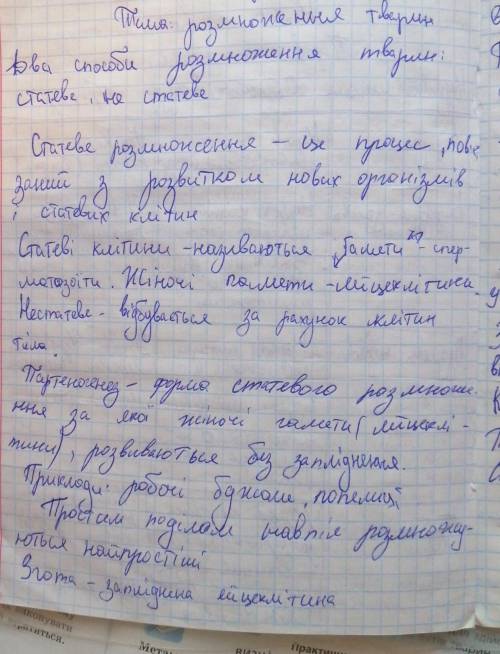 Тема: розмноження тварин
Два способи розмноження тварин:
статеве, не статеве
Статеве розмноження – це процес, повя
заний з розвитком нових організмів
і статевих клітин
Статеві клітини – називаються гамети - спер-
матозоїти. Жіночі гамети – яйцеклітина.
Нестатеве - відбувається за рахунок клітин
тіла.
Партеногенез – форма статевого розмноже-
ння за якої жіночі гамети (яйцеклі-
тини), розвиваються без запліднення.
Приклади: робочі бджоли, попелиці
Простим поділом навпіл розмножу-
ються найпростіші
Згота – запліднина яйцеклітина